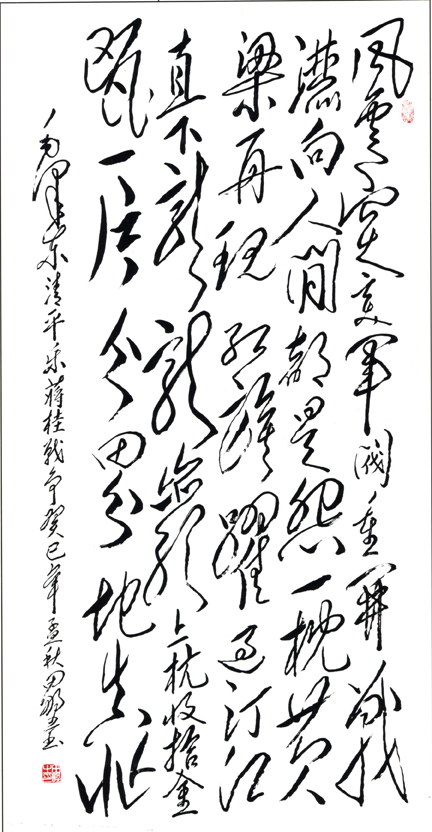 風雲突變軍閥重開戰
灑向人間都是怨一枕黄
粱再現紅旗躍過汀江
直下龍岩上杭收拾金
甌一片分田分地真忙
毛澤东清平乐蒋桂战争癸巳年孟秋田